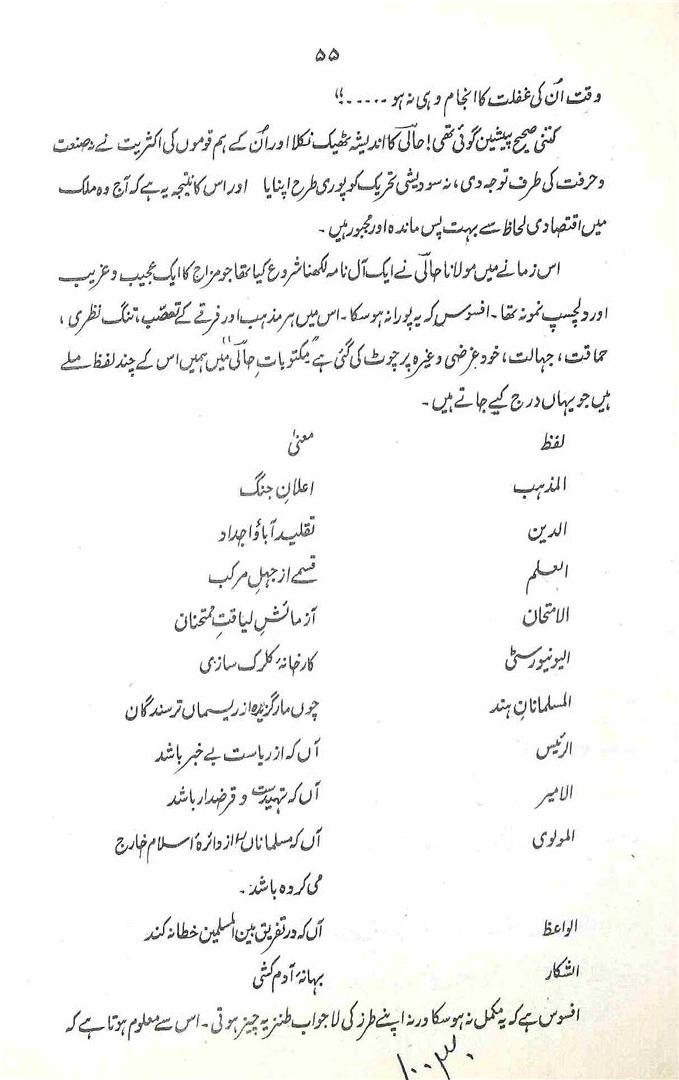 ۵۵
وقت اُن کی غفلت کا انجام وہی نہ ہو ۔۔۔۔۔"
کتنی صحیح پیشین گوئی تھی! حالیؔ کا اندیشہ ٹھیک نکلا اور اُن کے ہم قوموں کی اکثریت نے نہ صنعت
و حرفت کی طرف توجہ دی، نہ سودیشی تحریک کو پوری طرح اپنایا اور اس کا نتیجہ یہ ہے کہ آج وہ ملک
میں اقتصادی لحاظ سے بہت پس ماندہ اور مجبور ہیں۔
اس زمانے میں مولانا حالیؔ نے ایک آل نامہ لکھنا شروع کیا تھا جو مزاح کا ایک عجیب و غریب
اور دلچسپ نمونہ تھا۔ افسوس کہ یہ پورا نہ ہو سکا۔ اس میں ہر مذہب اور فرقے کے تعصّب، تنگ نظری،
حماقت، جہالت، خود غرضی وغیرہ پر چوٹ کی گئی ہے "مکتوباتِ حالیؔ" میں ہمیں اس کے چند لفظ ملے
ہیں جو یہاں درج کیے جاتے ہیں۔
لفظ معنیٰ
المذہب اعلانِ جنگ
الدین تقلید آباؤ اجداد
العلم قسمے از جہلِ مرکب
الامتحان آزمائشِ لیاقتِ ممتحنان
الیونیورسٹی کارخانۂ کلرک سازی
المسلمانانِ ہند چوں مارگزیدہ از ریسماں ترسندگان
الرئیس آں کہ از ریاست بے خبر باشد
الامیر آں کہ تہیدست و قرضدار باشد
المولوی آں کہ مسلماناں را از دائرۂ اسلام خارج
می کردہ باشد۔
الواعظ آں کہ در تفریق بین المسلمین خطا نہ کند
الشکار بہانۂ آدم کشی
افسوس ہے کہ یہ مکمل نہ ہو سکا ورنہ اپنے طرز کی لاجواب طنزیہ چیز ہوتی۔ اس سے معلوم ہوتا ہے کہ